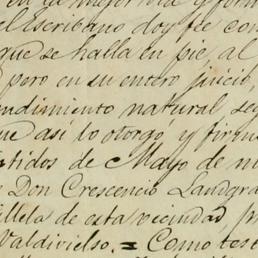 en la mejor via y form
el Escribano doy fé con
que se halla en pie, al
pero en su entero juicio,
ndimiento natural seg
ue asi lo otorgo y firm
ntidos de Mayo de mi
Don Crescencio Landgra
illela de esta vecindad, p
Valdivielso. = Como test